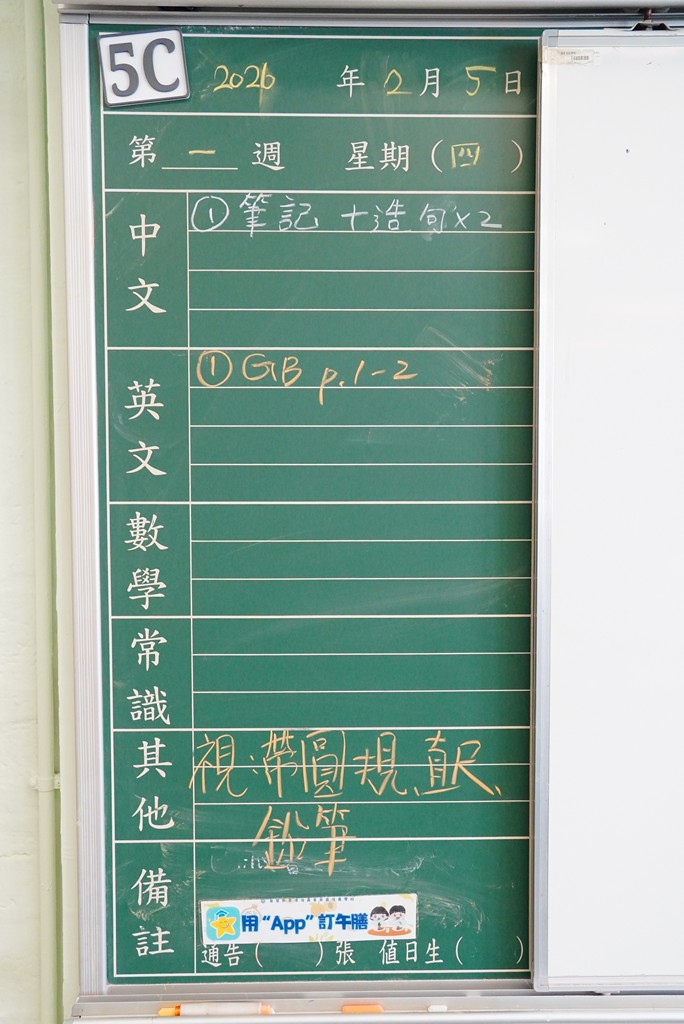 5C
2026 年 2 月 5 日
第 一 週 星期（四）
中文
① 筆記 + 造句 x 2
英文
① GB p.1-2
數學
常識
其他
視:帶圓規、直尺、
鉛筆
備註
用 “App” 訂午膳
通告（ ）張 值日生（ ）